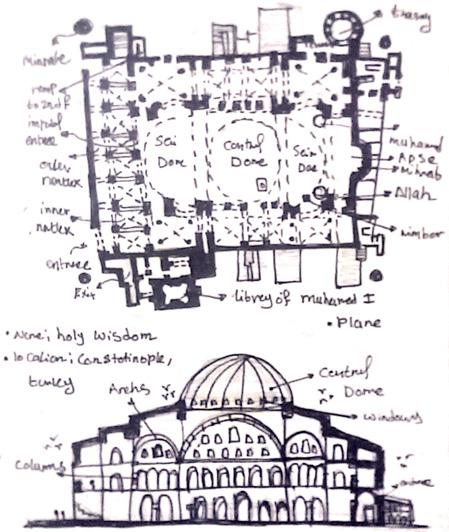 trasury
Minrate
ramp
to 2nd f
impirial
entree
outer
nartex
inner
nartex
entree
Exit
Semi
Dome
Central
Dome
Semi
Dome
Muhamed
APSE
Mihrab
Allah
Mimber
library of muhamed I
• Plane
• Name; holy wisdom
• location; Constotinople,
turkey
Arches
Central
Dome
windows
Columns